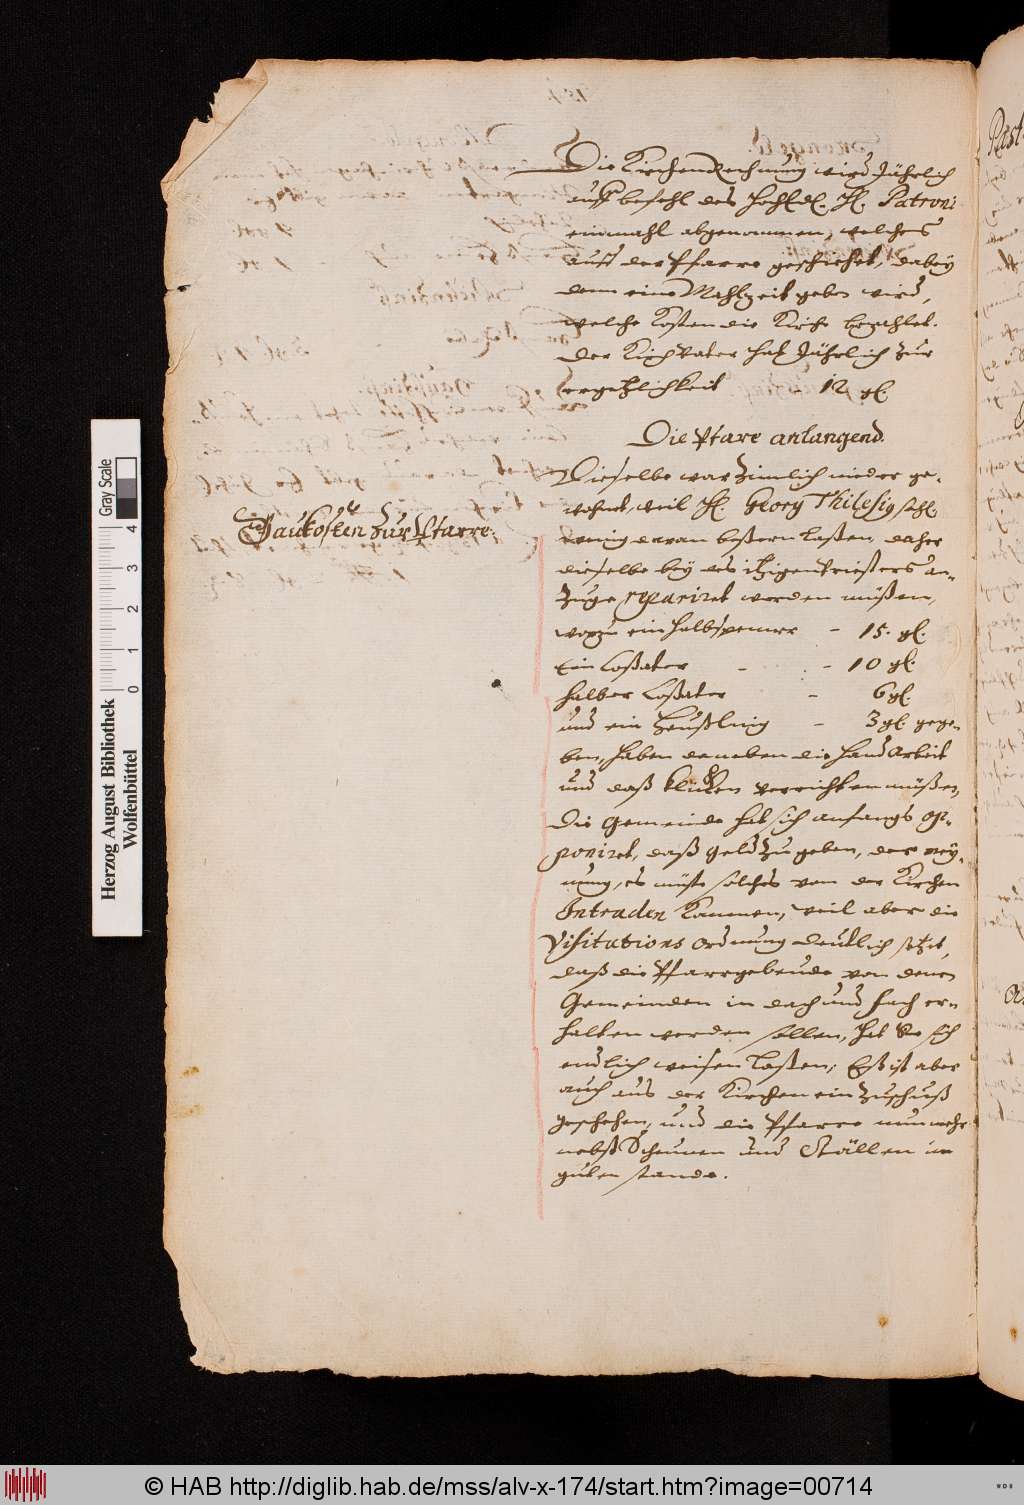 Die KirchenRechnung wird Jährlich
auff befehl des HochEdl. H. Patroni
einmahl abgenommen, welches
auff der Pfarre geschiehet, dabey
denn eine Mahlzeit geben wird,
welche Kosten die Kirche bezahlet.
Der KirchVater hat Jährlich zur
ergetzlichkeit - 12 gl.
Die Pfare anlangend.
Dieselbe war zimlich nieder ge-
wohnt, weil H. Georg Thilesig sehl.
wenig daran beßern laßen, daher
dieselbe bey des itzigen Priesters an-
zuge repariret werden müßen,
wozu ein halbspenner - 15. gl.
Ein Coßater - - 10 gl.
halber Coßater - 6 gl.
und ein Heußling - 3 gl. gege-
ben, haben daneben die handarbeit
und daß klücken verrichten müßen,
Die Gemeinde hat sich anfangs op-
poniret, daß geld zu geben, der mey-
nung, es müste solches von der Kirchen
Intraden kommen, weil aber die
Visitations ordnung deutlich setzet,
daß die Pfarrgebeude von denen
Gemeinden in dach und fach er-
halten werden sollen, hat sie sich
endlich weisen laßen; Eß ist aber
auch aus der Kirchen ein zuschuß
geschehen, und die Pfarre nunmehr
nebst Scheunen und Ställen in
guten stande.
Baukosten zur Pfarre.
Past
Herzog August Bibliothek
Wolfenbüttel
Gray Scale
0 1 2 3 4
© HAB http://diglib.hab.de/mss/alv-x-174/start.htm?image=00714